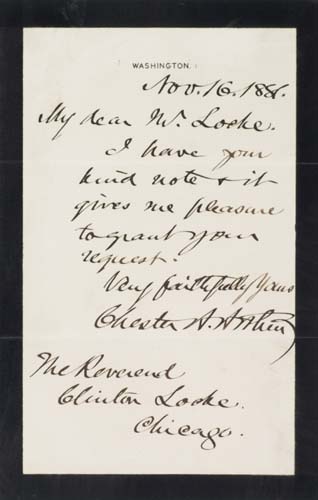 WASHINGTON.
Nov. 16. 1881.
My dear Mr. Locke.
I have your
kind note & it
gives me pleasure
to grant your
request.
Very faithfully Yours
Chester A. Arthur
The Reverend
Clinton Locke.
Chicago.